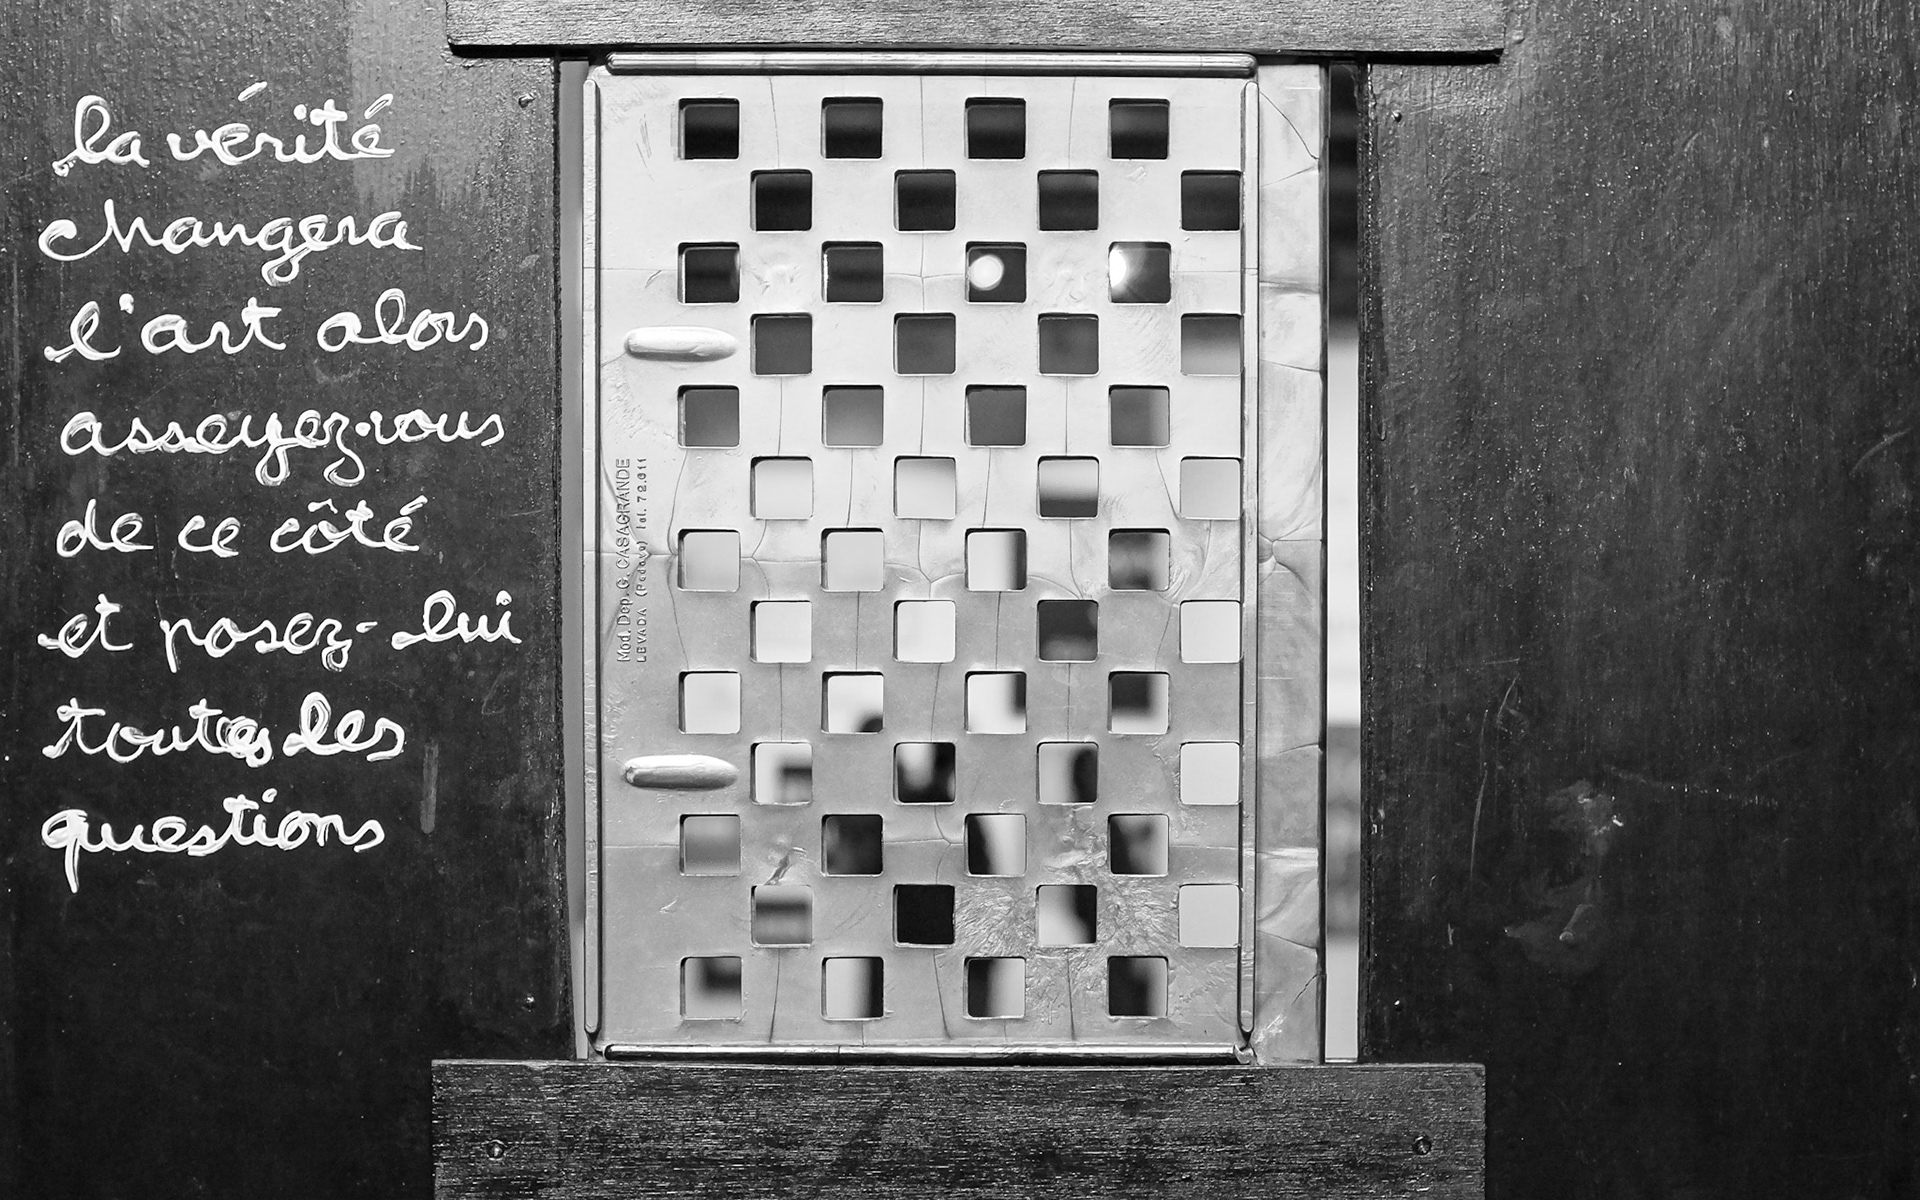 la vérité
changera
l'art alors
asseyez-vous
de ce côté
et posez-lui
toutes les
questions
Mod. Dep. G. CASAGRANDE
LEVADA (Padova) tel. 72.011